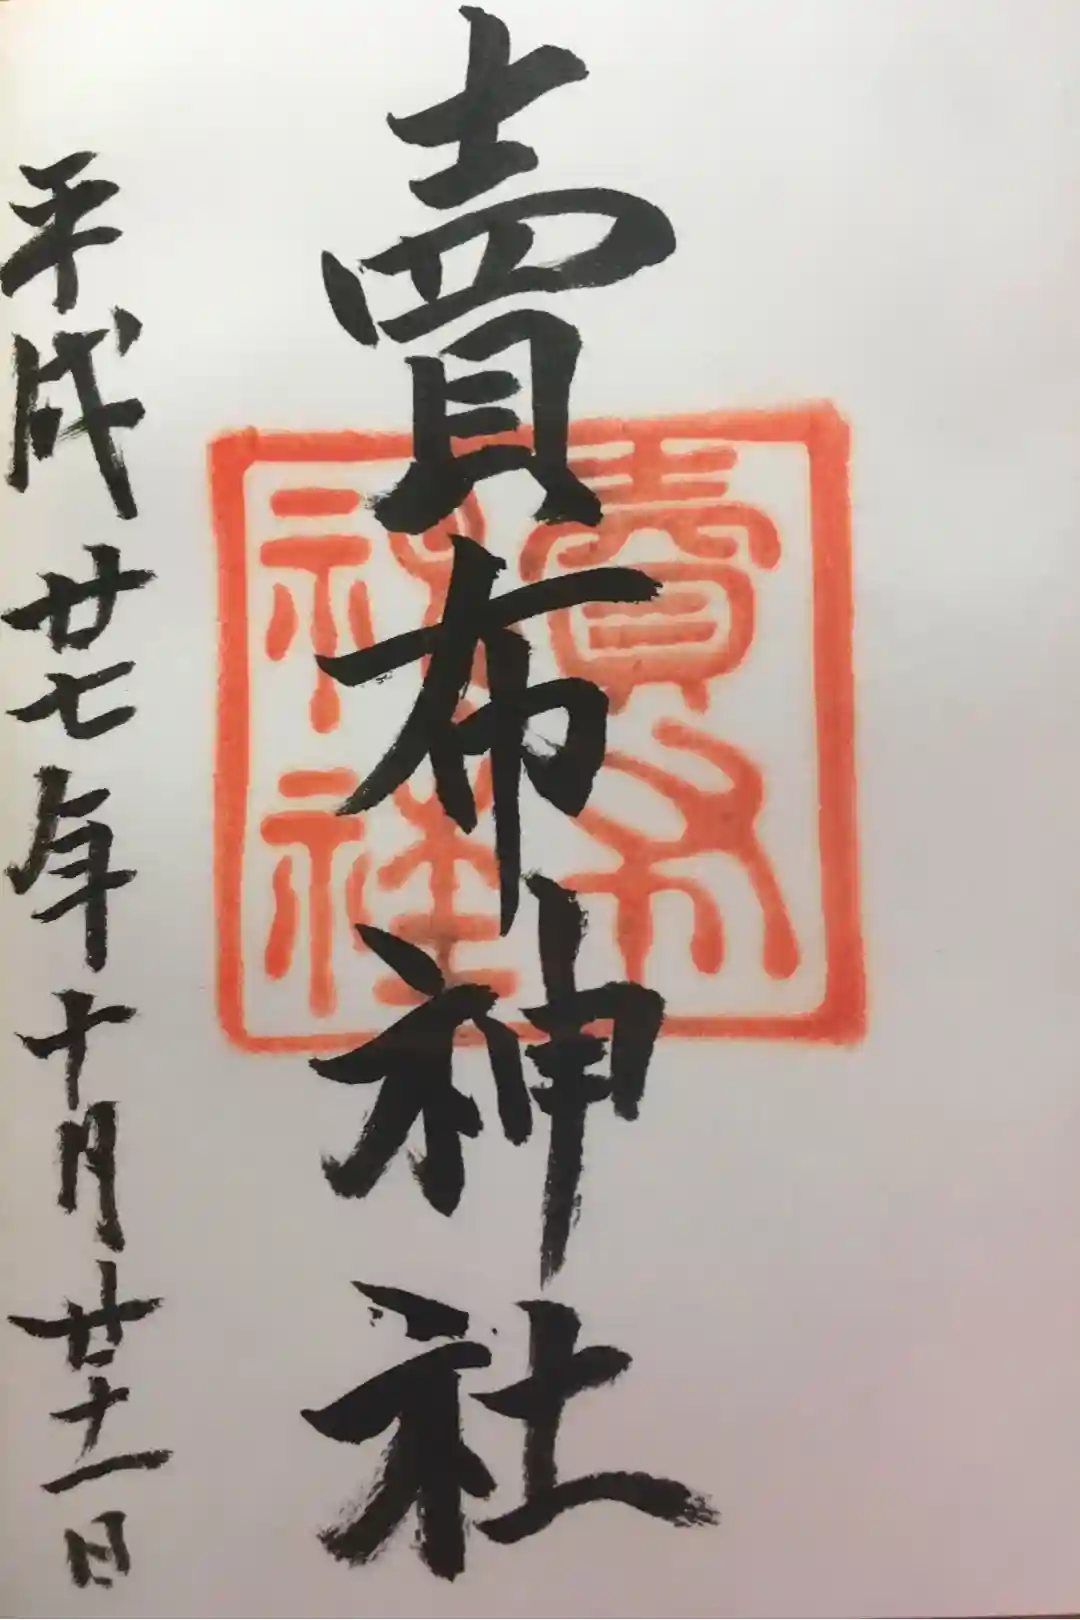 賣布神社
賣布
神社
平成廿七年十月廿十一日